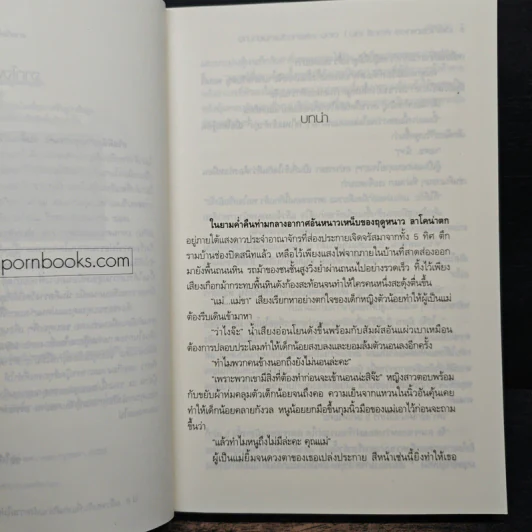 บทนำ
ในยามค่ำคืนท่ามกลางอากาศอันหนาวเหน็บของฤดูหนาว ลาโคน่าตก
อยู่ภายใต้แสงดาวประจำอาณาจักรที่ส่องประกายเจิดจรัสมาจากทั้ง 5 ทิศ ตึก
รามบ้านช่องปิดสนิทแล้ว เหลือไว้เพียงแสงไฟจากภายในบ้านที่สาดส่องออก
มายังพื้นถนนหิน รถม้าของชนชั้นสูงวิ่งย่ำผ่านถนนไปอย่างรวดเร็ว ทิ้งไว้เพียง
เสียงเกือกม้ากระทบพื้นหินดังก้องสะท้อนจนทำให้ใครคนหนึ่งสะดุ้งตื่นขึ้น
"แม่...แม่ขา" เสียงเรียกหาอย่างตกใจของเด็กหญิงตัวน้อยทำให้ผู้เป็นแม่
ต้องรีบเดินเข้ามาหา
"ว่าไงจ๊ะ" น้ำเสียงอ่อนโยนดังขึ้นพร้อมกับสัมผัสอันแผ่วเบาเหมือน
ต้องการปลอบประโลมทำให้เด็กน้อยสงบลงและยอมล้มตัวนอนลงอีกครั้ง
"ทำไมพวกคนข้างนอกถึงยังไม่นอนล่ะคะ"
"เพราะพวกเขามีสิ่งที่ต้องทำก่อนจะเข้านอนน่ะสิจ๊ะ" หญิงสาวตอบพร้อม
กับขยับผ้าห่มคลุมตัวเด็กน้อยจนถึงคอ ความเย็นจากแหวนในนิ้วอันคุ้นเคย
ทำให้เด็กน้อยคลายกังวล หนูน้อยยกมือขึ้นกุมนิ้วมือของแม่เอาไว้ก่อนจะถาม
ขึ้นว่า
"แล้วทำไมหนูถึงไม่มีล่ะคะ คุณแม่"
ผู้เป็นแม่ยิ้มจนดวงตาของเธอเปล่งประกาย สีหน้าเช่นนี้ยิ่งทำให้เธอ
pornbooks.com